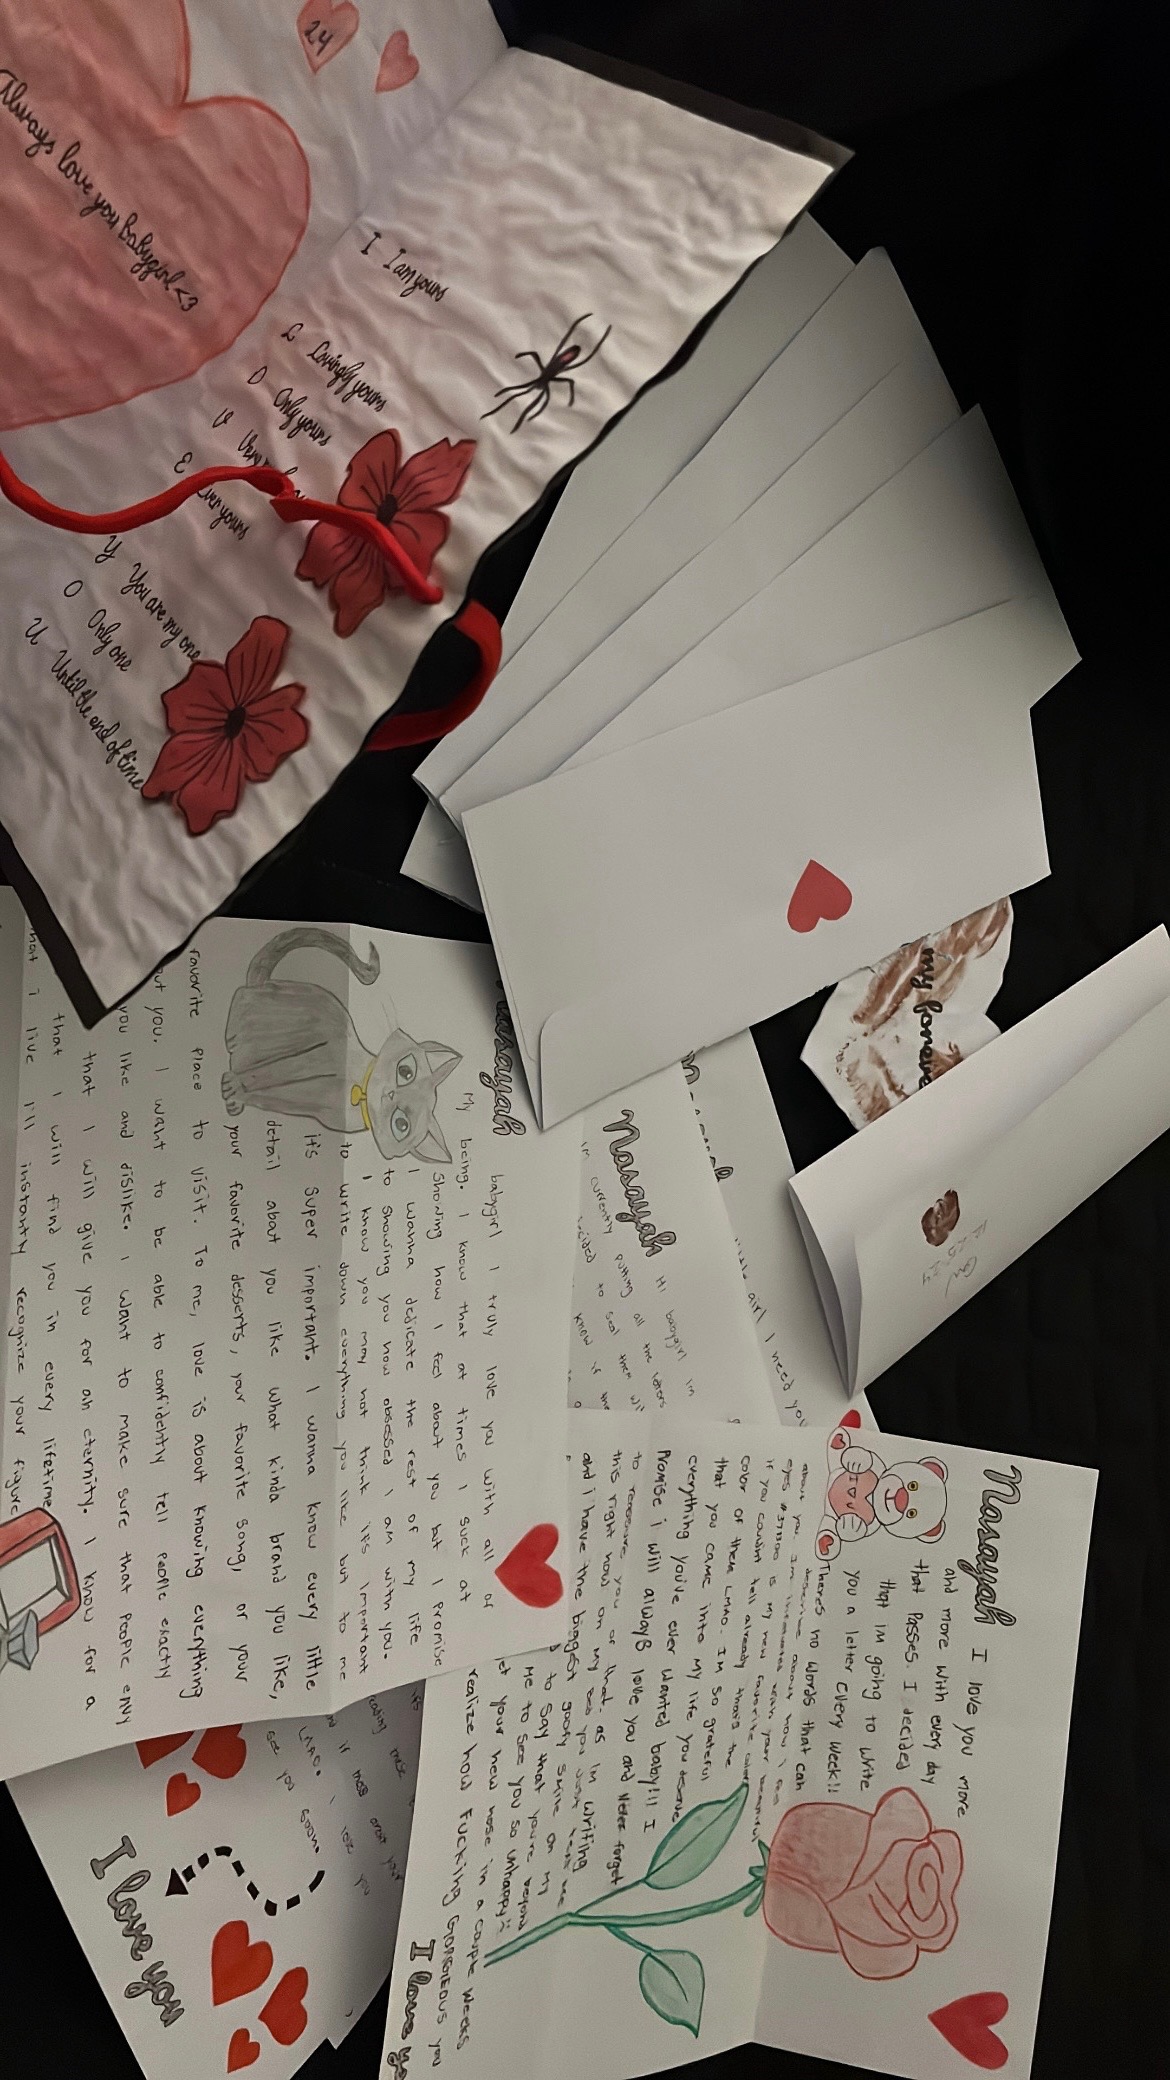 24
Always love you Babygirl <3
I I am yours
L Lovingly yours
O Only yours
V
E Ever yours
Y You are my one
O Only one
U Until the end of time
my forever
Nasayah
My babygirl I truly love you with all of
being. I know that at times I suck at
showing how I feel about you but I promise
I wanna dedicate the rest of my life
to showing you how obsessed I am with you.
I know you may not think it's important
to write down everything you like but to me
it's super important. I wanna know every little
detail about you like what kinda brand you like,
your favorite desserts, your favorite song, or your
favorite place to visit. To me, love is about knowing everything
out you. I want to be able to confidently tell people exactly
you like and dislike. I want to make sure that people envy
that I will give you for an eternity. I know for a
that I will find you in every lifetime
that i live I'll instantly recognize your figure
Nasayah
Hi babygirl im
im currently putting all the letters
decided to seal them wi
know if the
girl I need you
Nasayah
I love you more
and more with every day
that passes. I decided
that im going to write
you a letter every week!!
Theres no words that can
describe about how I feel
about you. Im
eyes #371D00 is my new favorite color
if you couldn't tell already thats the
color of them LMAO. I'm so grateful
that you came into my life you deserve
everything you've ever wanted baby!!! I
Promise i will always love you and never forget
to reassure you of that. as im writing
this right now on my bed you just
and i have the biggest goofy smile on my
to say that you're beyond
me to see you so unhappy
get your new nose in a couple weeks
realize how fucking GORGEOUS you
I love
I LOVE U
LMAO. I love you
see you soon.
I love you